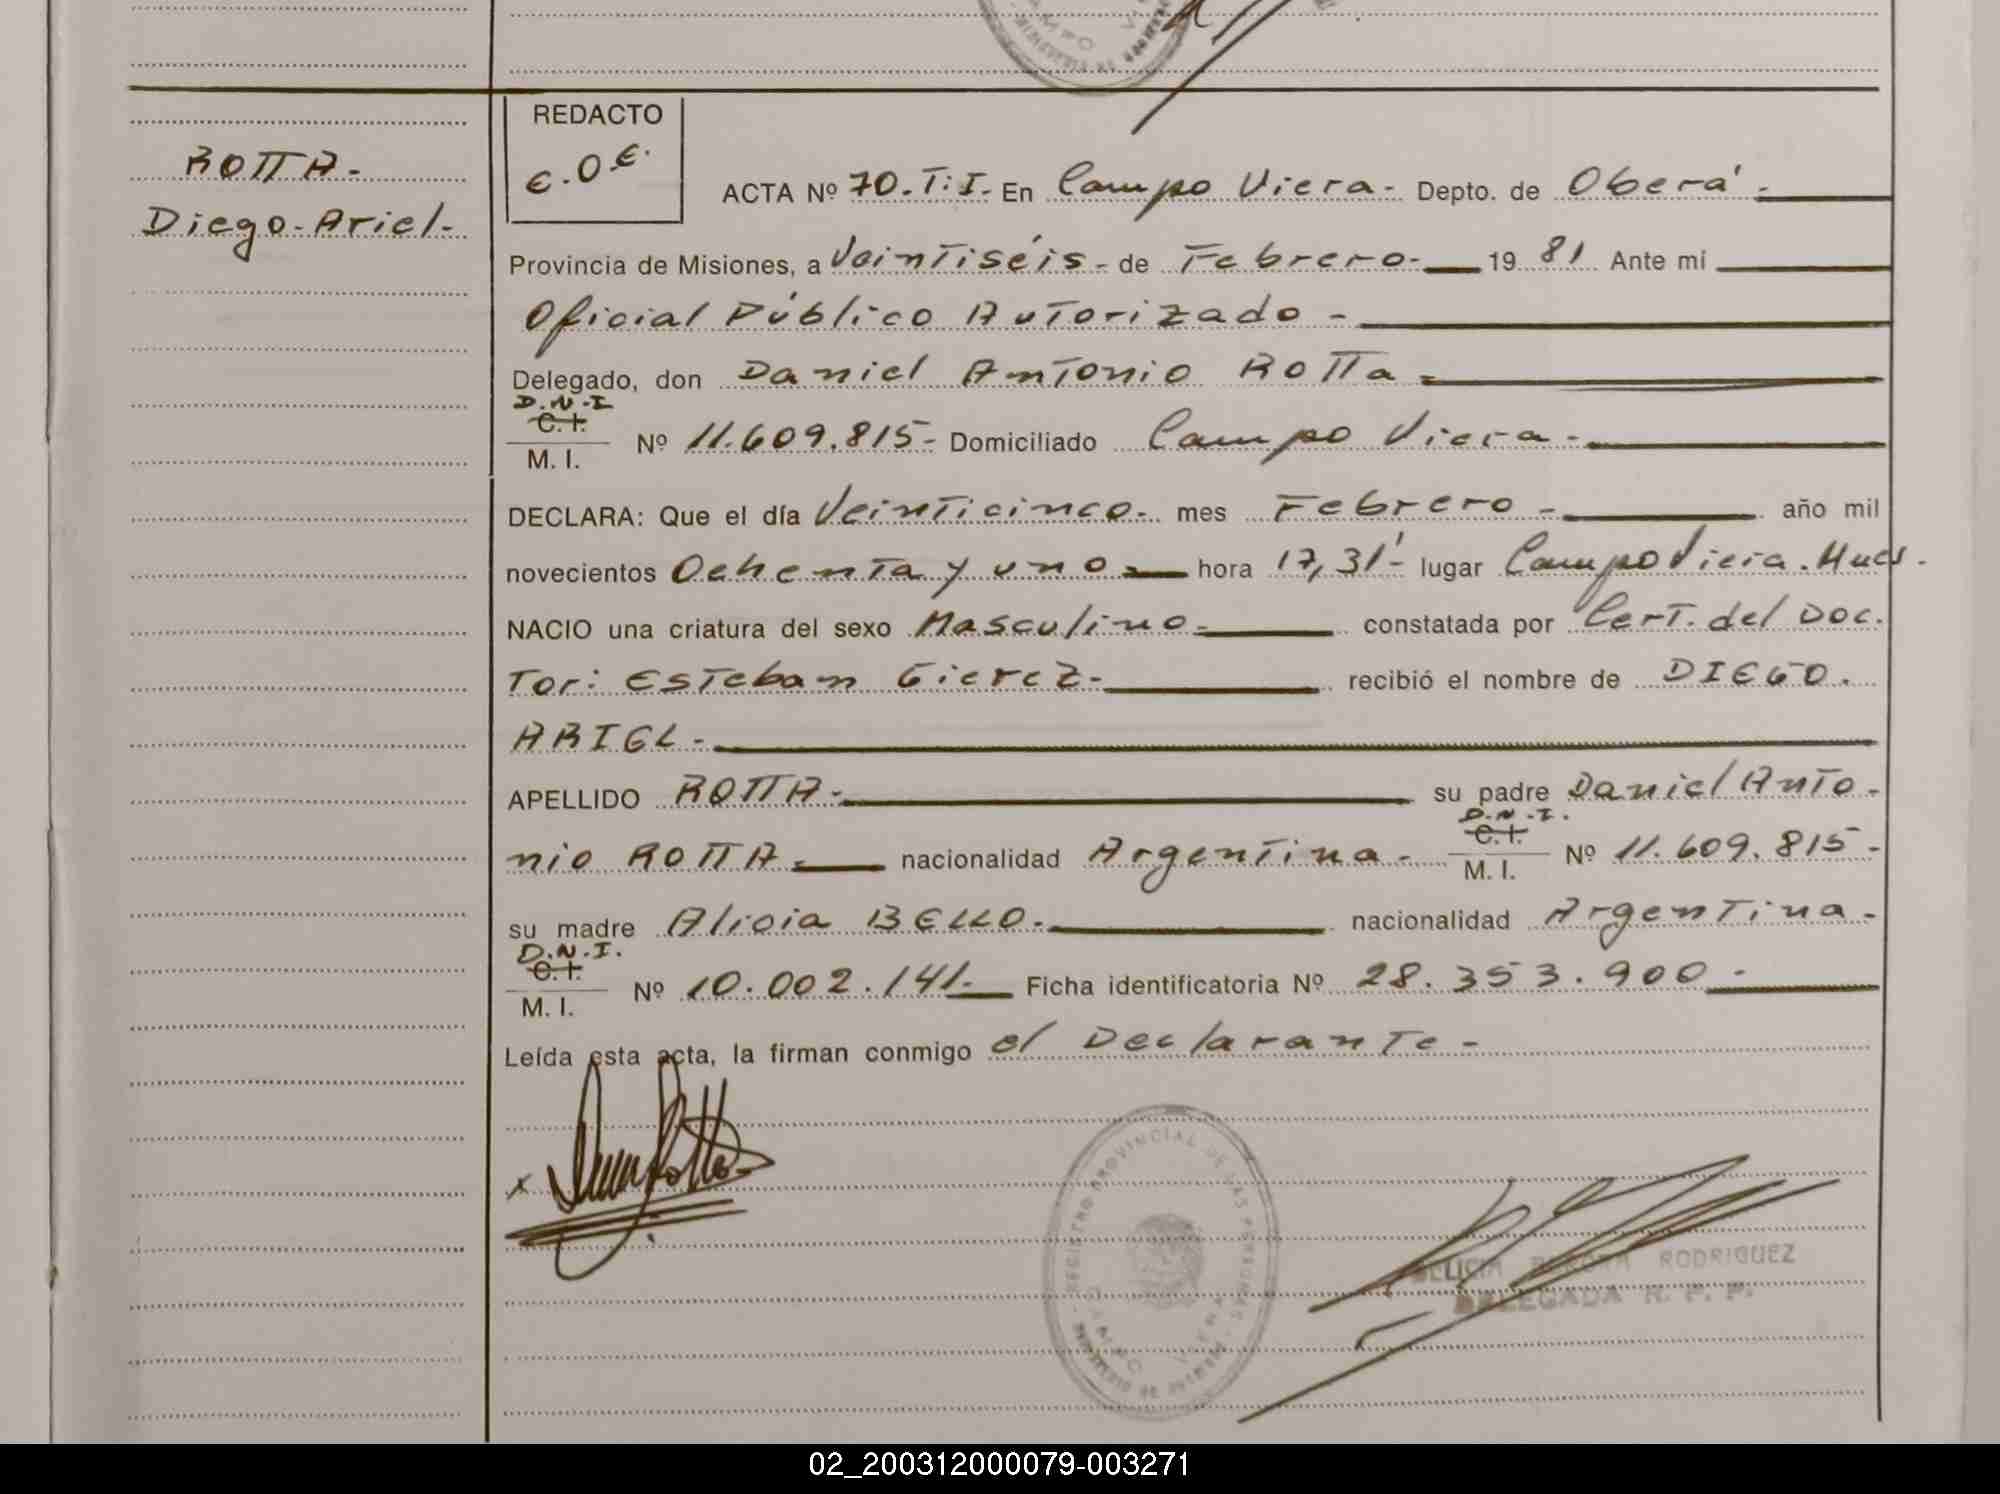 ROTTA-
Diego-Ariel-
REDACTO
E.O.E.
ACTA Nº 70.T:I.- En Campo Viera- Depto. de Oberá-
Provincia de Misiones, a Veintiséis- de Febrero- 1981 Ante mí
Oficial Público Autorizado-
Delegado, don Daniel Antonio ROTTA-
D.N.I
C.I.
M. I. Nº 11.609.815- Domiciliado Campo Viera-
DECLARA: Que el día Veinticinco- mes Febrero- año mil
novecientos Ochenta y uno- hora 17,31'- lugar Campo Viera. Mnes.
NACIO una criatura del sexo Masculino- constatada por Cert. del Doc.
Tor: Esteban Gierez- recibió el nombre de DIEGO.
ARIEL-
APELLIDO ROTTA- su padre Daniel Anto-
nio ROTTA- nacionalidad Argentina- D.N.I. C.I. M. I. Nº 11.609.815-
su madre Alicia BELLO- nacionalidad Argentina-
D.N.I.
C.I.
M. I. Nº 10.002.141- Ficha identificatoria Nº 28.353.900-
Leída esta acta, la firman conmigo el Declarante-
x
REGISTRO PROVINCIAL DE LAS PERSONAS
CAMPO VIERA
RODRIGUEZ
DELEGADA R. P. P.
02_200312000079-003271